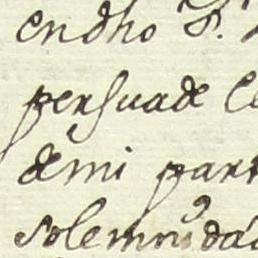 en dho P.
persuade
de mi part
solemnidad